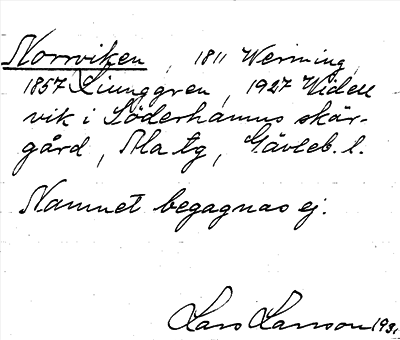 Norrviken, 1811 Werming,
1857 Ljunggren, 1927 Widell
vik i Söderhamns skär-
gård, Ala tg, Gävleb. l.
Namnet begagnas ej.
Lars Larsson 193